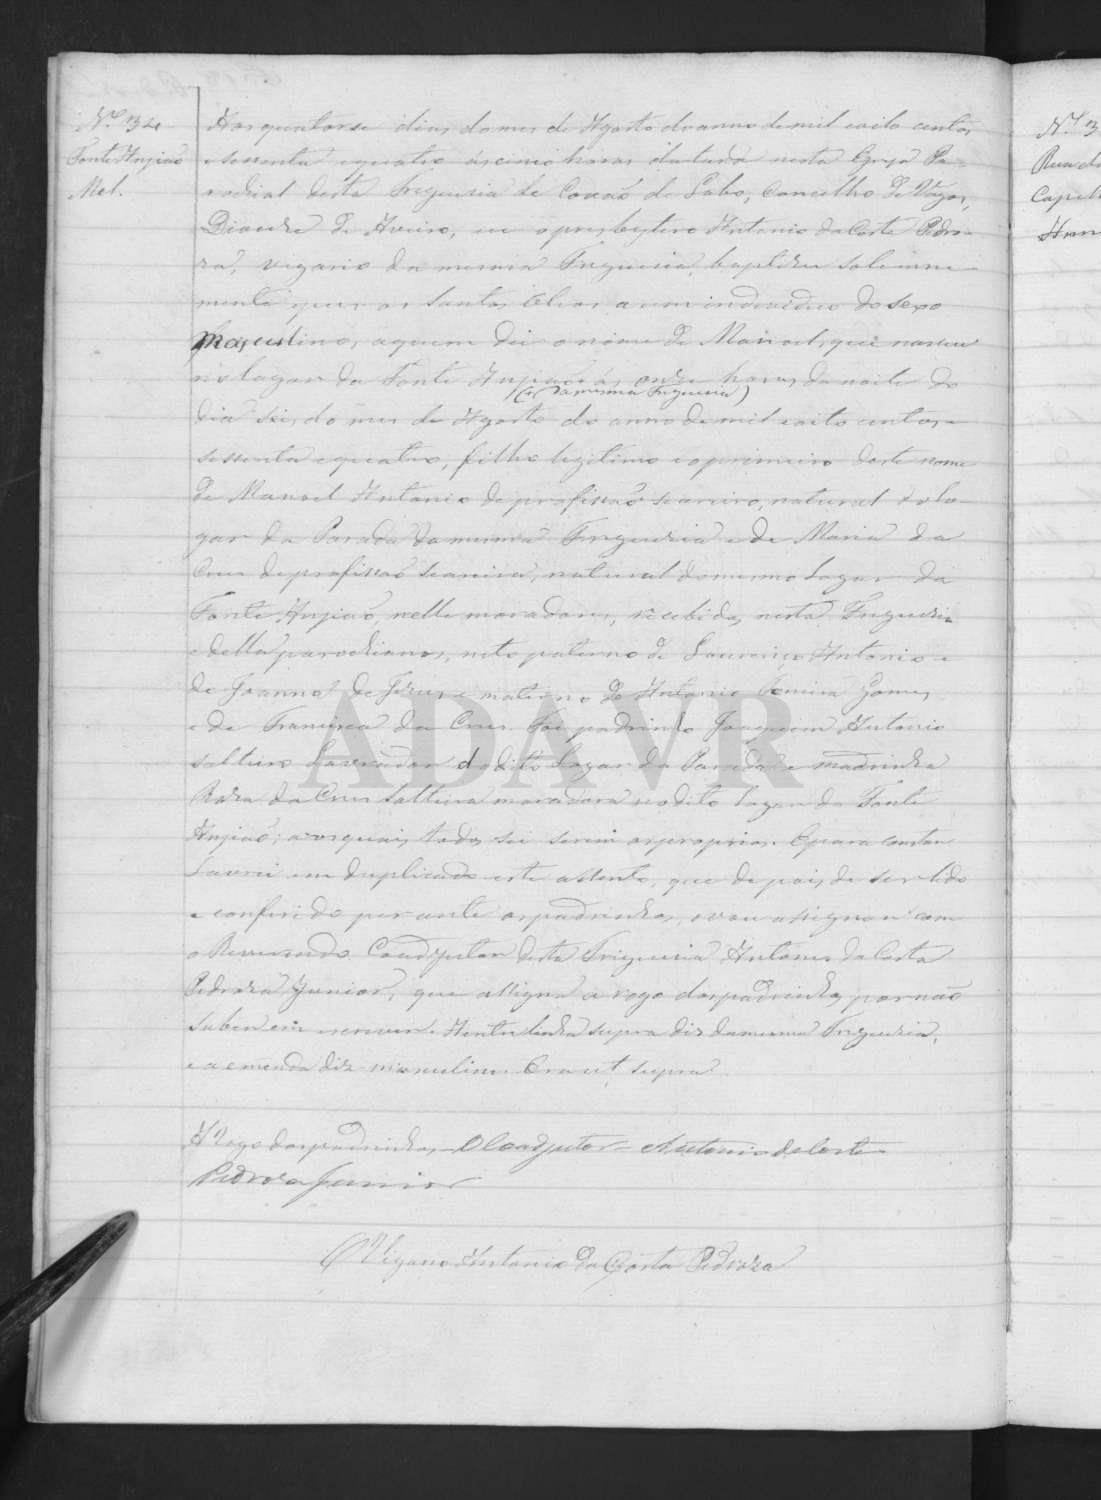 Nº 34
Fonte Anjião
Mel.
Aos quatorse dias do mes de Agosto do anno de mil oito centos
e sessenta e quatro ás cinco horas da tarde nesta Egreja Pa-
rochial desta Freguesia de Covão do Lobo, Concelho de Vagos,
Diocese de Aveiro, eu o presbytero Antonio da Costa Pedro-
za, vigario da mesma Freguesia, baptizei solemne-
mente e puz os Santos Oleos a um individuo do sexo
masculino, a quem dei o nome de Manoel, que nasceu
no lugar da Fonte Anjião ás onze horas da noite do
(+ da mesma Freguesia)
dia seis do mes de Agosto do anno de mil oito centos e
sessenta e quatro, filho legitimo e o primeiro deste nome
de Manoel Antonio de profissão seareiro, natural do lo-
gar da Parada da mesma Freguesia e de Maria da
Cruz de profissão seareira, natural do mesmo Lugar da
Fonte Anjião, nelle moradores, recebidos nesta Freguesia
e della parochianos, neto paterno de Lourenço Antonio e
de Joanna de Jezus e materno de Antonio Gomes
e de Francisca da Cruz. Foi padrinho Joaquim Antonio
solteiro Lavrador do dito Lugar da Parada e madrinha
Roza da Cruz solteira moradora no dito lugar da Fonte
Anjião; os quais todos sei serem os proprios. E para constar
Lavrei em duplicado este assento, que depois de ser lido
e conferido perante os padrinhos, o vou assignar com
o Reverendo Coadjutor desta Freguesia Antonio da Costa
Pedroza Junior, que assigna a rogo dos padrinhos por não
saberem escrever. A entrelinha supra diz da mesma Freguesia,
e a emenda diz masculino. Era ut supra
A rogo dos padrinhos O Coadjutor Antonio da Costa
Pedroza Junior
O Vigario Antonio da Costa Pedroza
Nº 3
Capell
ADAVR